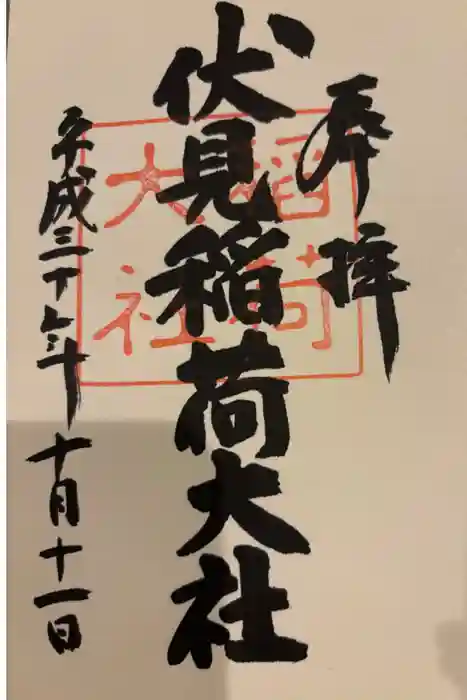 奉拝
伏見稲荷大社
平成三十年十月十一日
稲荷
大社